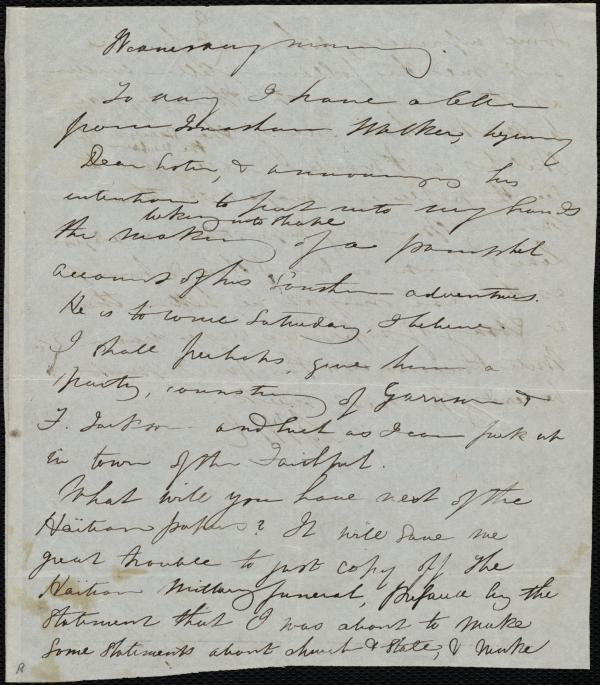 Wednesday morning.
To day I have a letter
from Jonathan Walker, begining
Dear Sister, & announcing his
intention to put into my hands
taking into shape
the making of a pamphlet
account of his Southern adventures.
He is to come Saturday, I believe.
I shall perhaps, give him a
party, consisting of Garrison &
F. Jackson and such as I can pick up
in town of the Faithful.
What will you have next of the
Haïtian papers? It will save me
great trouble to just copy off the
Haïtian Military funeral, preface by the
statement that I was about to make
some statements about church & state, & make